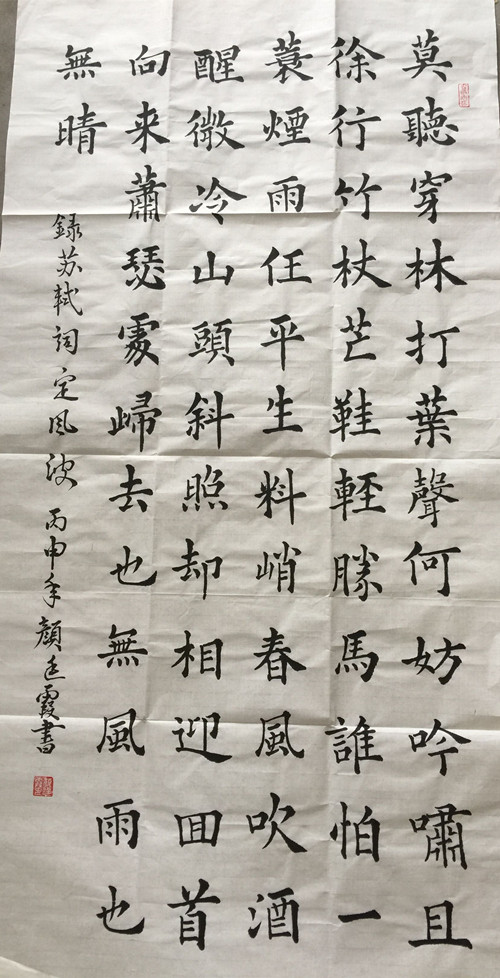 莫聽穿林打葉聲何妨吟嘯且
徐行竹杖芒鞋輕勝馬誰怕一
蓑煙雨任平生料峭春風吹酒
醒微冷山頭斜照却相迎回首
向来蕭瑟處歸去也無風雨也
無晴
録苏軾词定风波丙申年顏廷霞書